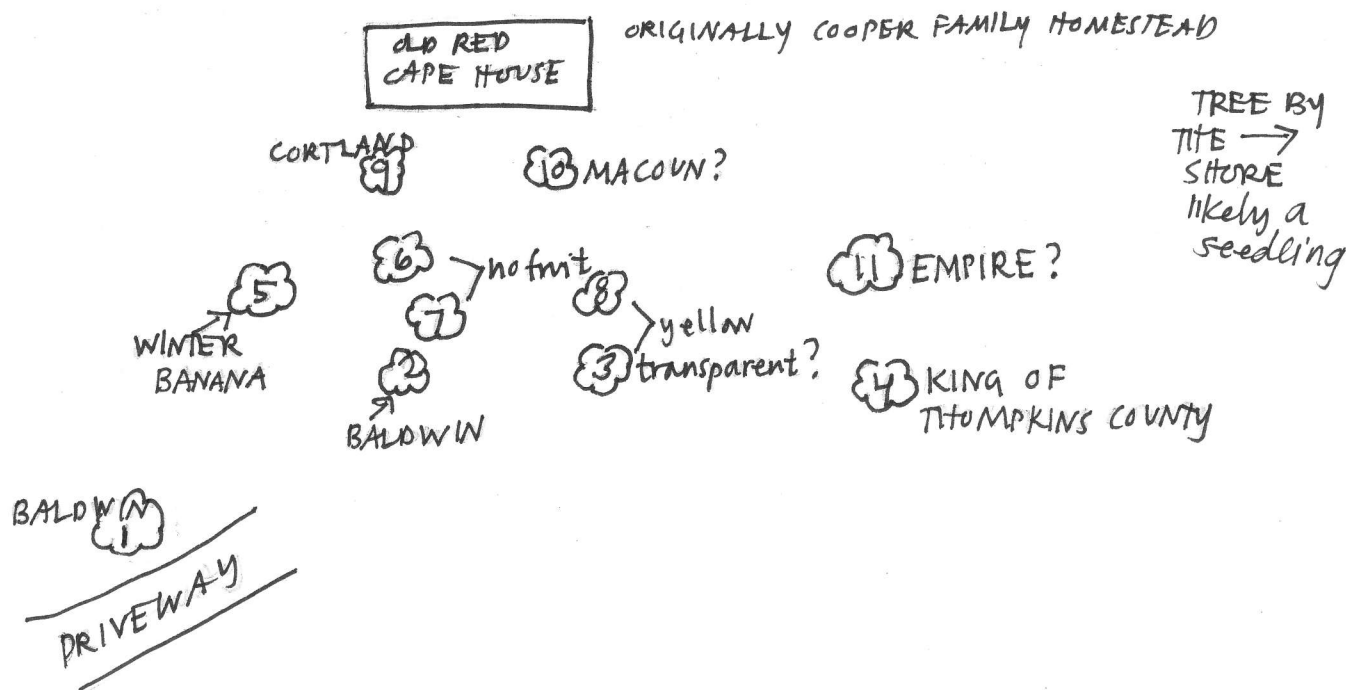 OLD RED
CAPE HOUSE
ORIGINALLY COOPER FAMILY HOMESTEAD
TREE BY
THE →
SHORE
likely a
seedling
CORTLAND
9
10 MACOUN?
6
7
no fruit
8
3
yellow
transparent?
11 EMPIRE?
5
WINTER
BANANA
2
BALDWIN
4 KING OF
THOMPKINS COUNTY
BALDWIN
1
DRIVEWAY